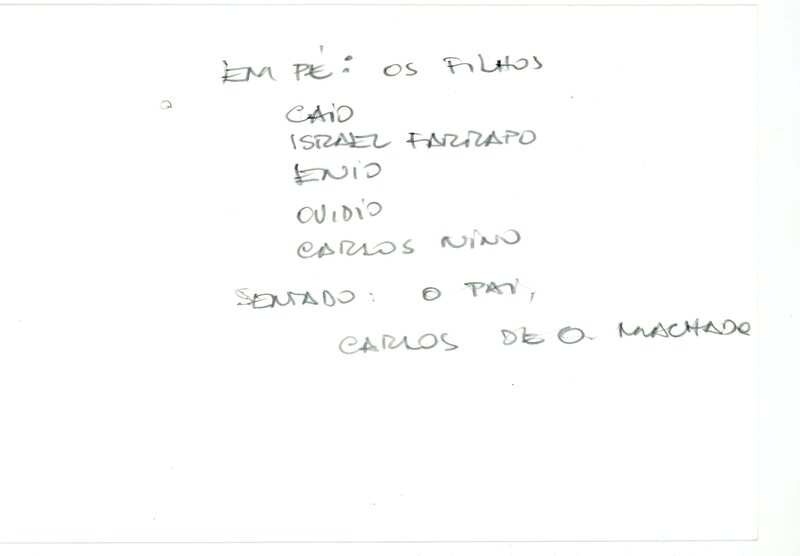 EM PÉ: OS FILHOS
CAIO
ISRAEL FARRAPO
ENIO
OVIDIO
CARLOS NINO
SENTADO: O PAI,
CARLOS DE O. MACHADO